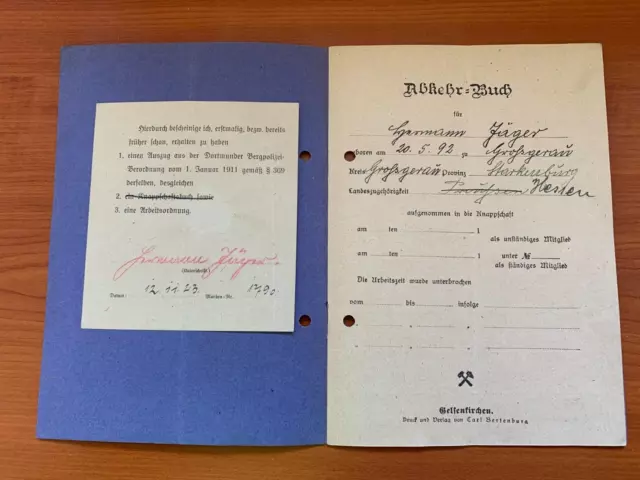 Hierdurch bescheinige ich, erstmalig, bezw. bereits
früher schon, erhalten zu haben
1. einen Auszug aus der Dortmunder Bergpolizei-
Verordnung vom 1. Januar 1911 gemäß § 369
derselben, desgleichen
2. ein Knappschaftsbuch sowie
3. eine Arbeitsordnung.
Hermann Jäger.
(Unterschrift)
Datum: 12.11.23. Marken-Nr. 1790
Abkehr=Buch
für
Hermann Jäger
geboren am 20.5.92 zu Großgerau
Kreis Großgerau Provinz Starkenburg
Landeszugehörigkeit Preußen Hessen
aufgenommen in die Knappschaft
am ten 1
als unständiges Mitglied
am ten 1 unter №
als ständiges Mitglied
Die Arbeitszeit wurde unterbrochen
vom bis infolge
" " "
" " "
Gelsenkirchen.
Druck und Verlag von Carl Bertenburg